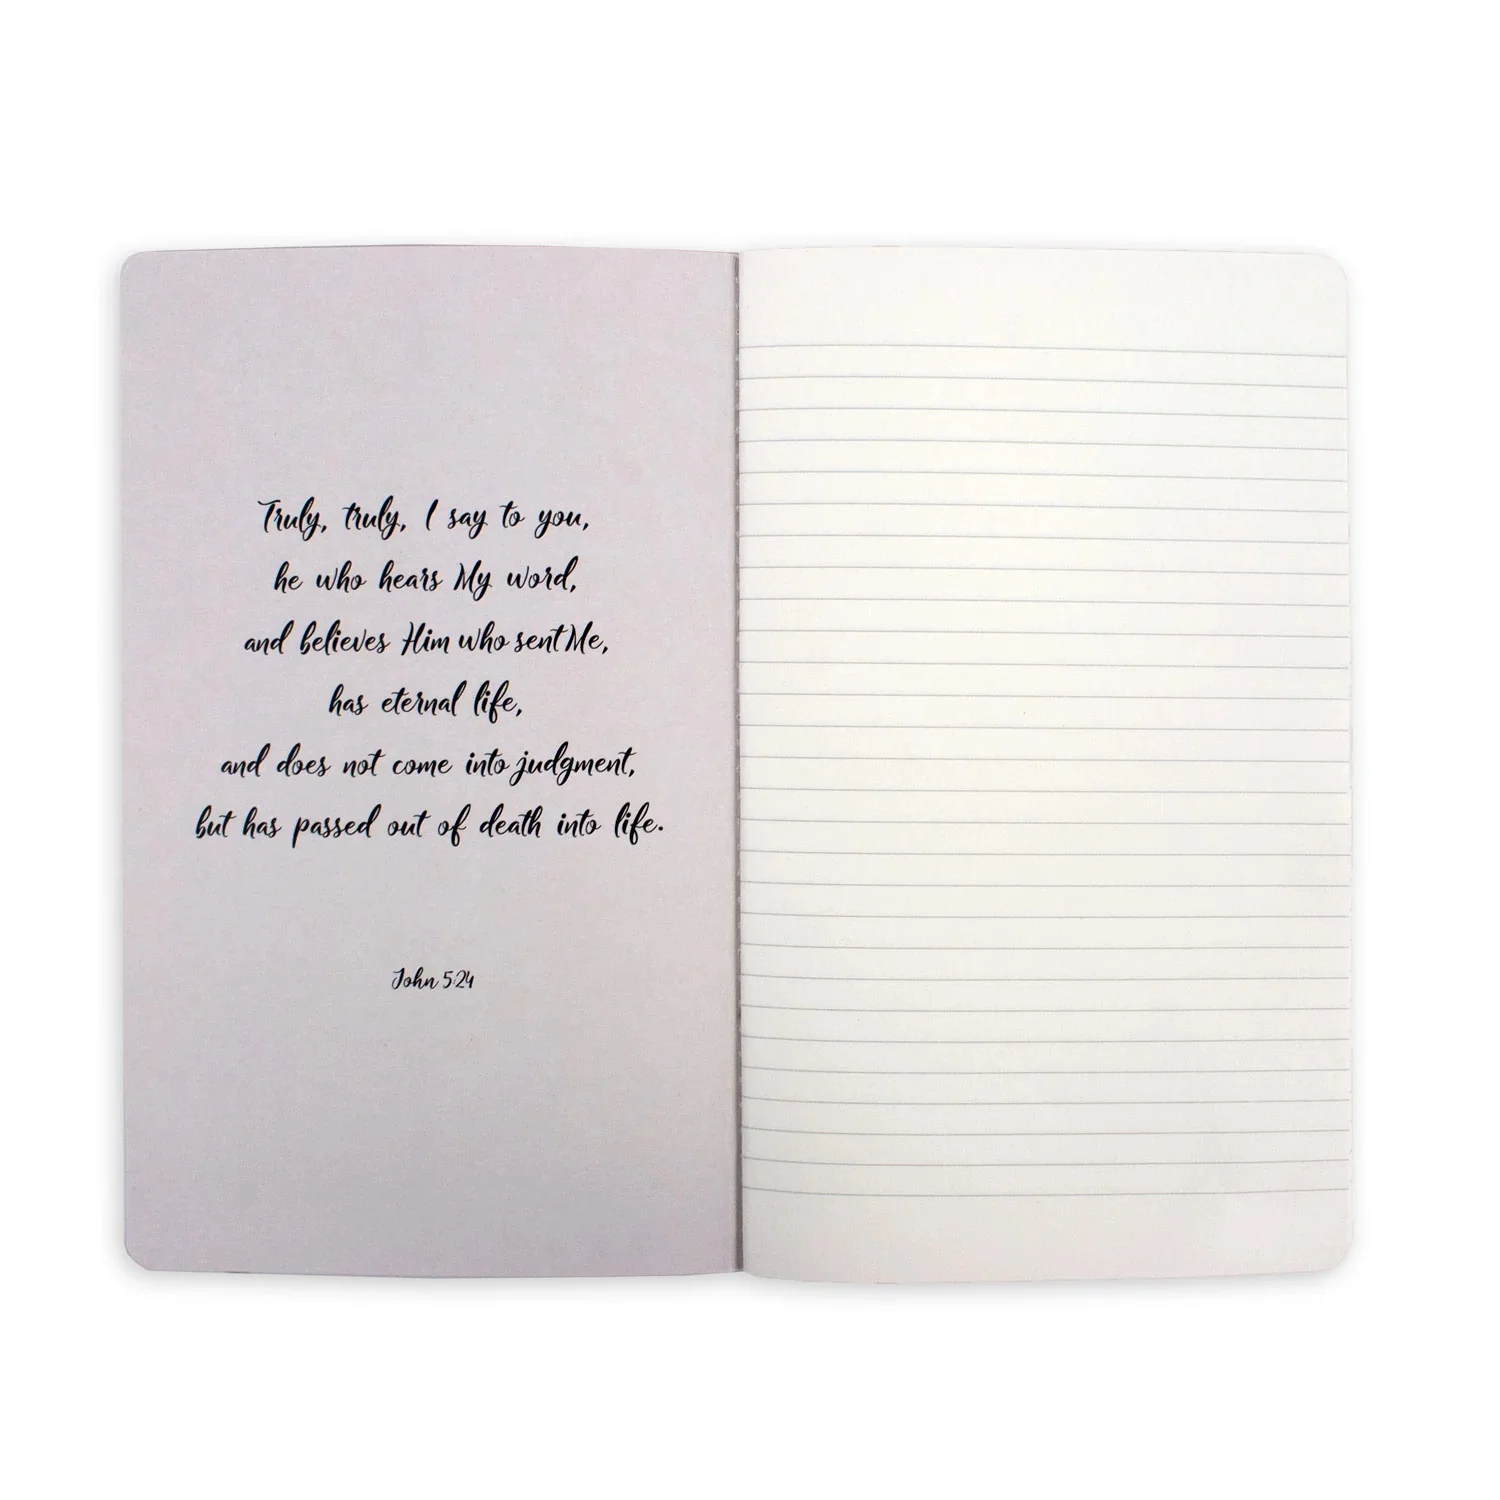 Truly, truly, I say to you,
he who hears My word,
and believes Him who sent Me,
has eternal life,
and does not come into judgment,
but has passed out of death into life.
John 5:24